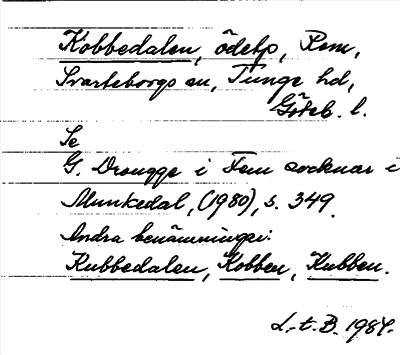 Kobbedalen, ödetp, Rom,
Svarteborgs sn, Tunge hd,
Göteb. l.
Se
G. Drougge i Fem socknar i
Munkedal, (1980), s. 349.
Andra benämningar:
Kubbedalen, Kobben, Kubben.
L.-t. B. 1984.